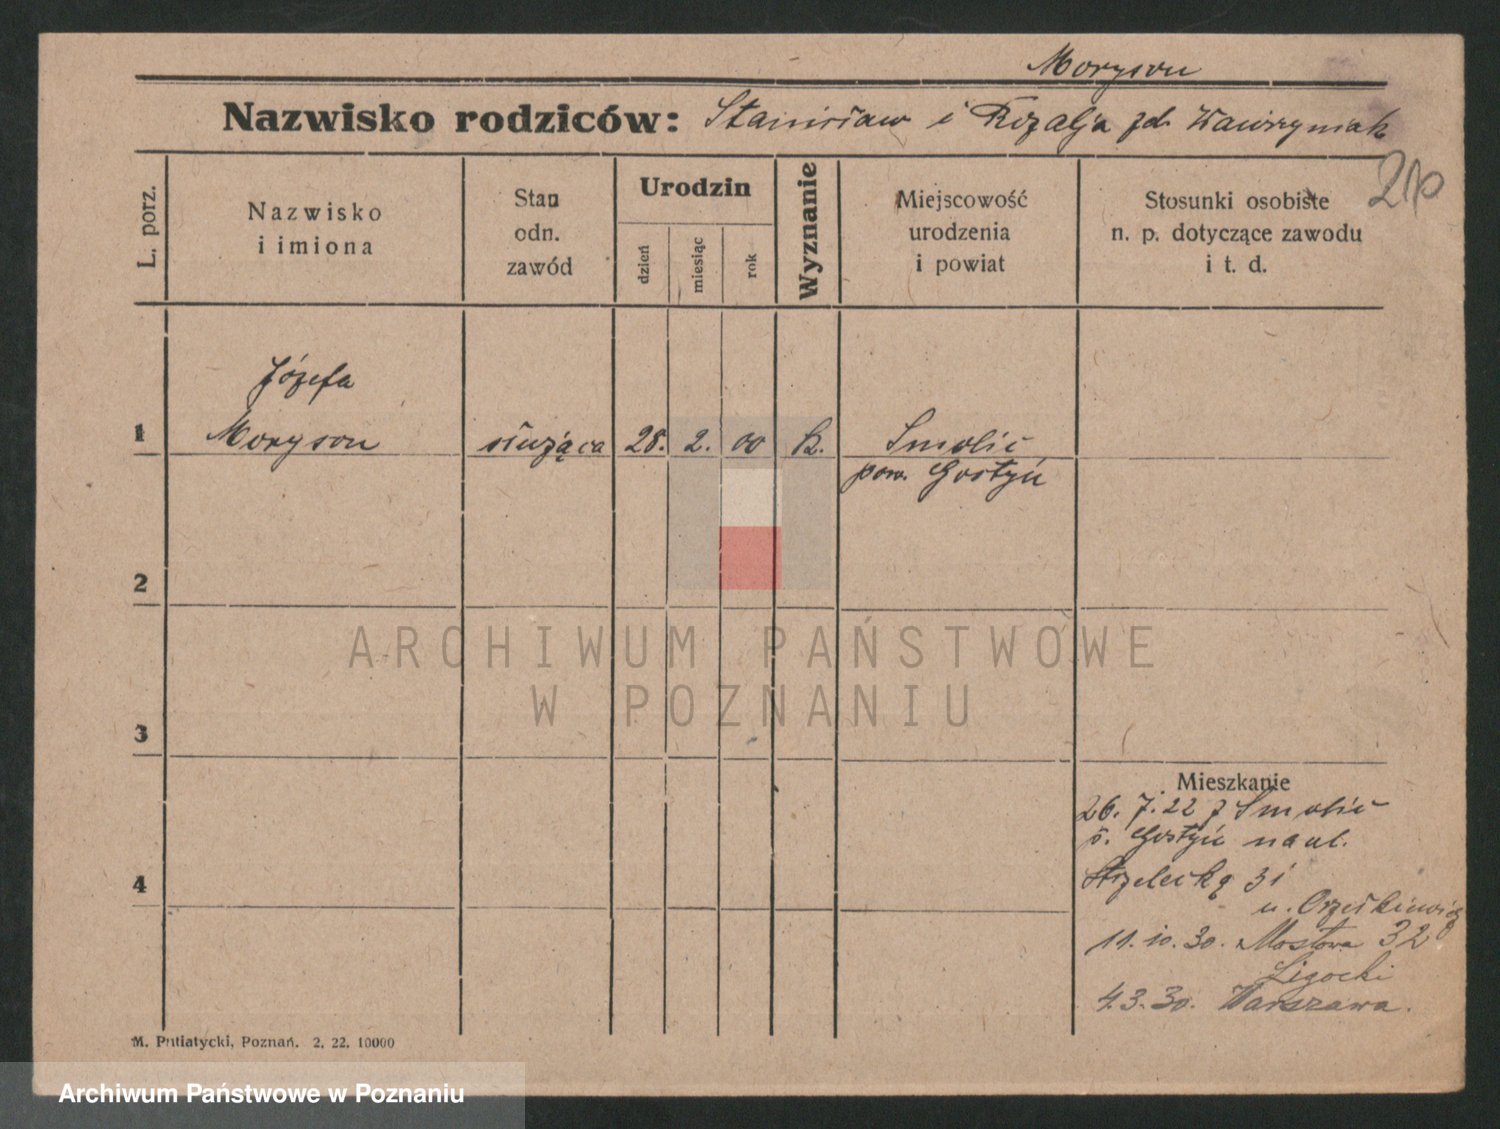 Moryson
Nazwisko rodziców: Stanisław i Rozalja zd. Wawrzyniak
L. porz.
Nazwisko
i imiona
Stan
odn.
zawód
Urodzin
dzień
miesiąc
rok
Wyznanie
Miejscowość
urodzenia
i powiat
Stosunki osobiste
n. p. dotyczące zawodu
i t. d.
Józefa
1 Moryson służąca 28. 2. 00 k. Smolić
pow. Gostyń
2
3
4
Mieszkanie
26. 7. 22 z Smolić
p. Gostyń na ul.
Strzelecką 31
u. Orzełkiewicz
11. 10. 30. Mostowa 32
Ligocki
4. 3. 30. Warszawa.
M. Putiatycki, Poznań. 2. 22. 10000
ARCHIWUM PAŃSTWOWE
W POZNANIU
Archiwum Państwowe w Poznaniu